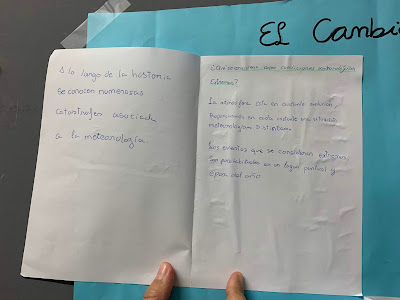 EL Cambi
A lo largo de la historia
se conocen numerosas
catastrofes asociada
a la meteorología
¿Qué se consideran como condiciones meteorológicas
extremas?
La atmosfera está en constante evolución
en cada instante una situación
meteorológica distinta.
Los eventos que se consideran extremos
son poco habituales en un lugar puntual y
época del año